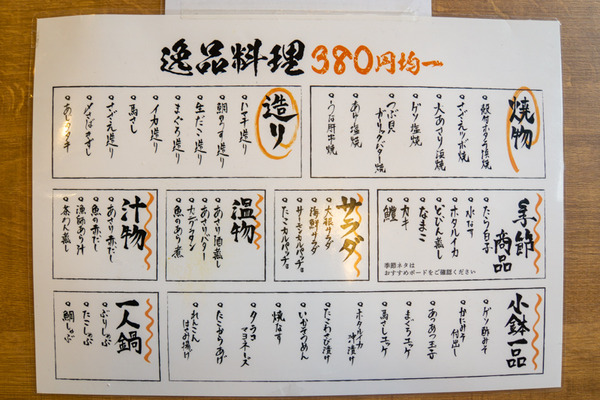 逸品料理 380円均一
焼物
殻付ホタテ浜焼
さざえつぼ焼
大あさり浜焼
ゲソ塩焼
つぶ貝
ガーリックバター焼
あゆ塩焼
うなぎ肝串焼
造り
ハマチ造り
鯛の子造り
生だこ造り
まぐろ造り
イカ造り
馬さし
さざえ造り
〆さばきずし
季節商品
たら白子
水なす
ホタルイカ
どびん蒸し
なまこ
カキ
鱧
季節ネタは
おすすめボードをご確認ください
サラダ
大根サラダ
海鮮サラダ
サーモンカルパッチョ
たこカルパッチョ
温物
あさり酒蒸し
あさりバター
カニグラタン
魚のあら煮
汁物
あさり赤だし
魚の赤だし
漁師あら汁
茶わん蒸し
小鉢一品
ゲソ酢みそ
付出し
まぐろユッケ
馬さしユッケ
ホタルイカ
沖漬け
たこわさび漬け
いかそうめん
焼なす
タラコ
マヨネーズ
たこからあげ
れんこん
はさみ揚げ
一人鍋
ぶりしゃぶ
たこしゃぶ
鯛しゃぶ